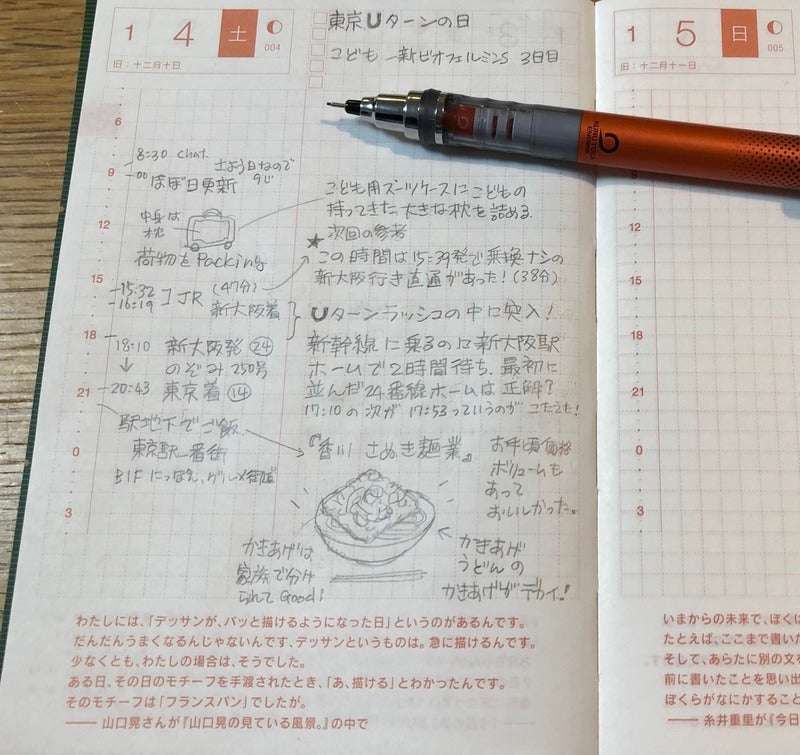 1 4 土 004
旧：十二月十日
東京Uターンの日
こども 新ビオフェルミンS 3日目
6
9
12
15
18
21
0
3
8:30 chat.
土よう日なので
00 ほぼ日更新 9じ
中身は
枕
荷物をPacking
こども用スーツケースにこどもの
持ってきた大きな枕を詰める
★次回の参考
この時間は15:39発で乗換ナシの
新大阪行き直通があった！(38分)
15:32 JR (47分)
16:19 新大阪着
Uターンラッシュの中に突入！
18:10 新大阪発 24
↓ のぞみ250号
20:43 東京着 14
新幹線に乗るのに新大阪駅
ホームで2時間待ち、最初に
並んだ24番線ホームは正解？
17:10の次が17:53っていうのがこたえた！
駅地下でご飯
東京駅一番街
B1F にっぽん、グルメ街道
『香川 さぬき麺業』
お手頃価格
ボリュームも
あって
おいしかった。
かきあげは
家族で分け
られてGood!
かきあげ
うどんの
かきあげがデカイ！
わたしには、「デッサンが、パッと描けるようになった日」というのがあるんです。
だんだんうまくなるんじゃないんです、デッサンというものは。急に描けるんです。
少なくとも、わたしの場合は、そうでした。
ある日、その日のモチーフを手渡されたとき、「あ、描ける」とわかったんです。
そのモチーフは「フランスパン」でしたが。
―― 山口晃さんが『山口晃の見ている風景。』の中で
KURU TOGA
ENGINE
1 5 日 005
旧：十二月十一日
6
9
12
15
18
21
0
3
いまからの未来で、ぼく
たとえば、ここまで書いた
そして、あらたに別の文を
前に書いたことを思い出
ぼくらがなにかすること
―― 糸井重里が『今日